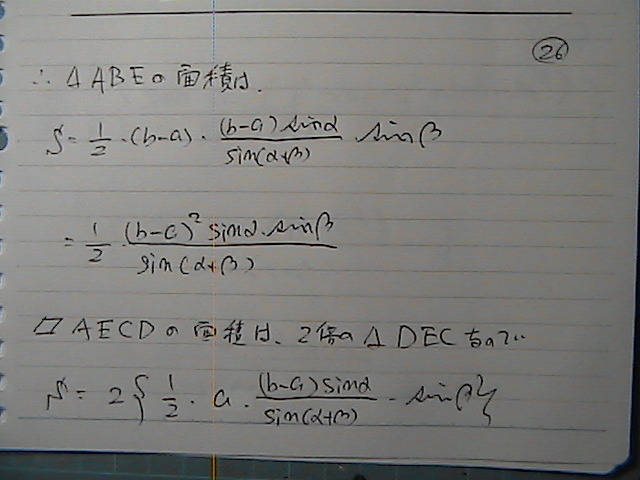 ㉖
∴ △ABEの面積は、
S = 1/2・(b-a)・(b-a)sinα/sin(α+β)・sinβ
= 1/2 (b-a)² sinα・sinβ/sin(α+β)
▱AECDの面積は、2倍の△DECなので
S = 2{1/2・a・(b-a)sinα/sin(α+β)・sinβ}